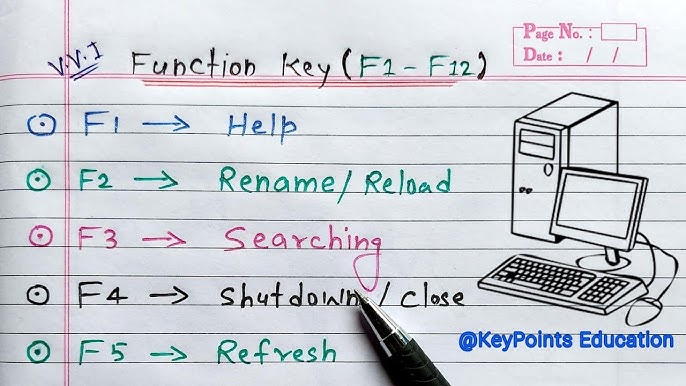 Page No. :
Date : / /
V.V.I Function Key (F1 - F12)
F1 → Help
F2 → Rename / Reload
F3 → Searching
F4 → Shutdown / Close
F5 → Refresh
@KeyPoints Education